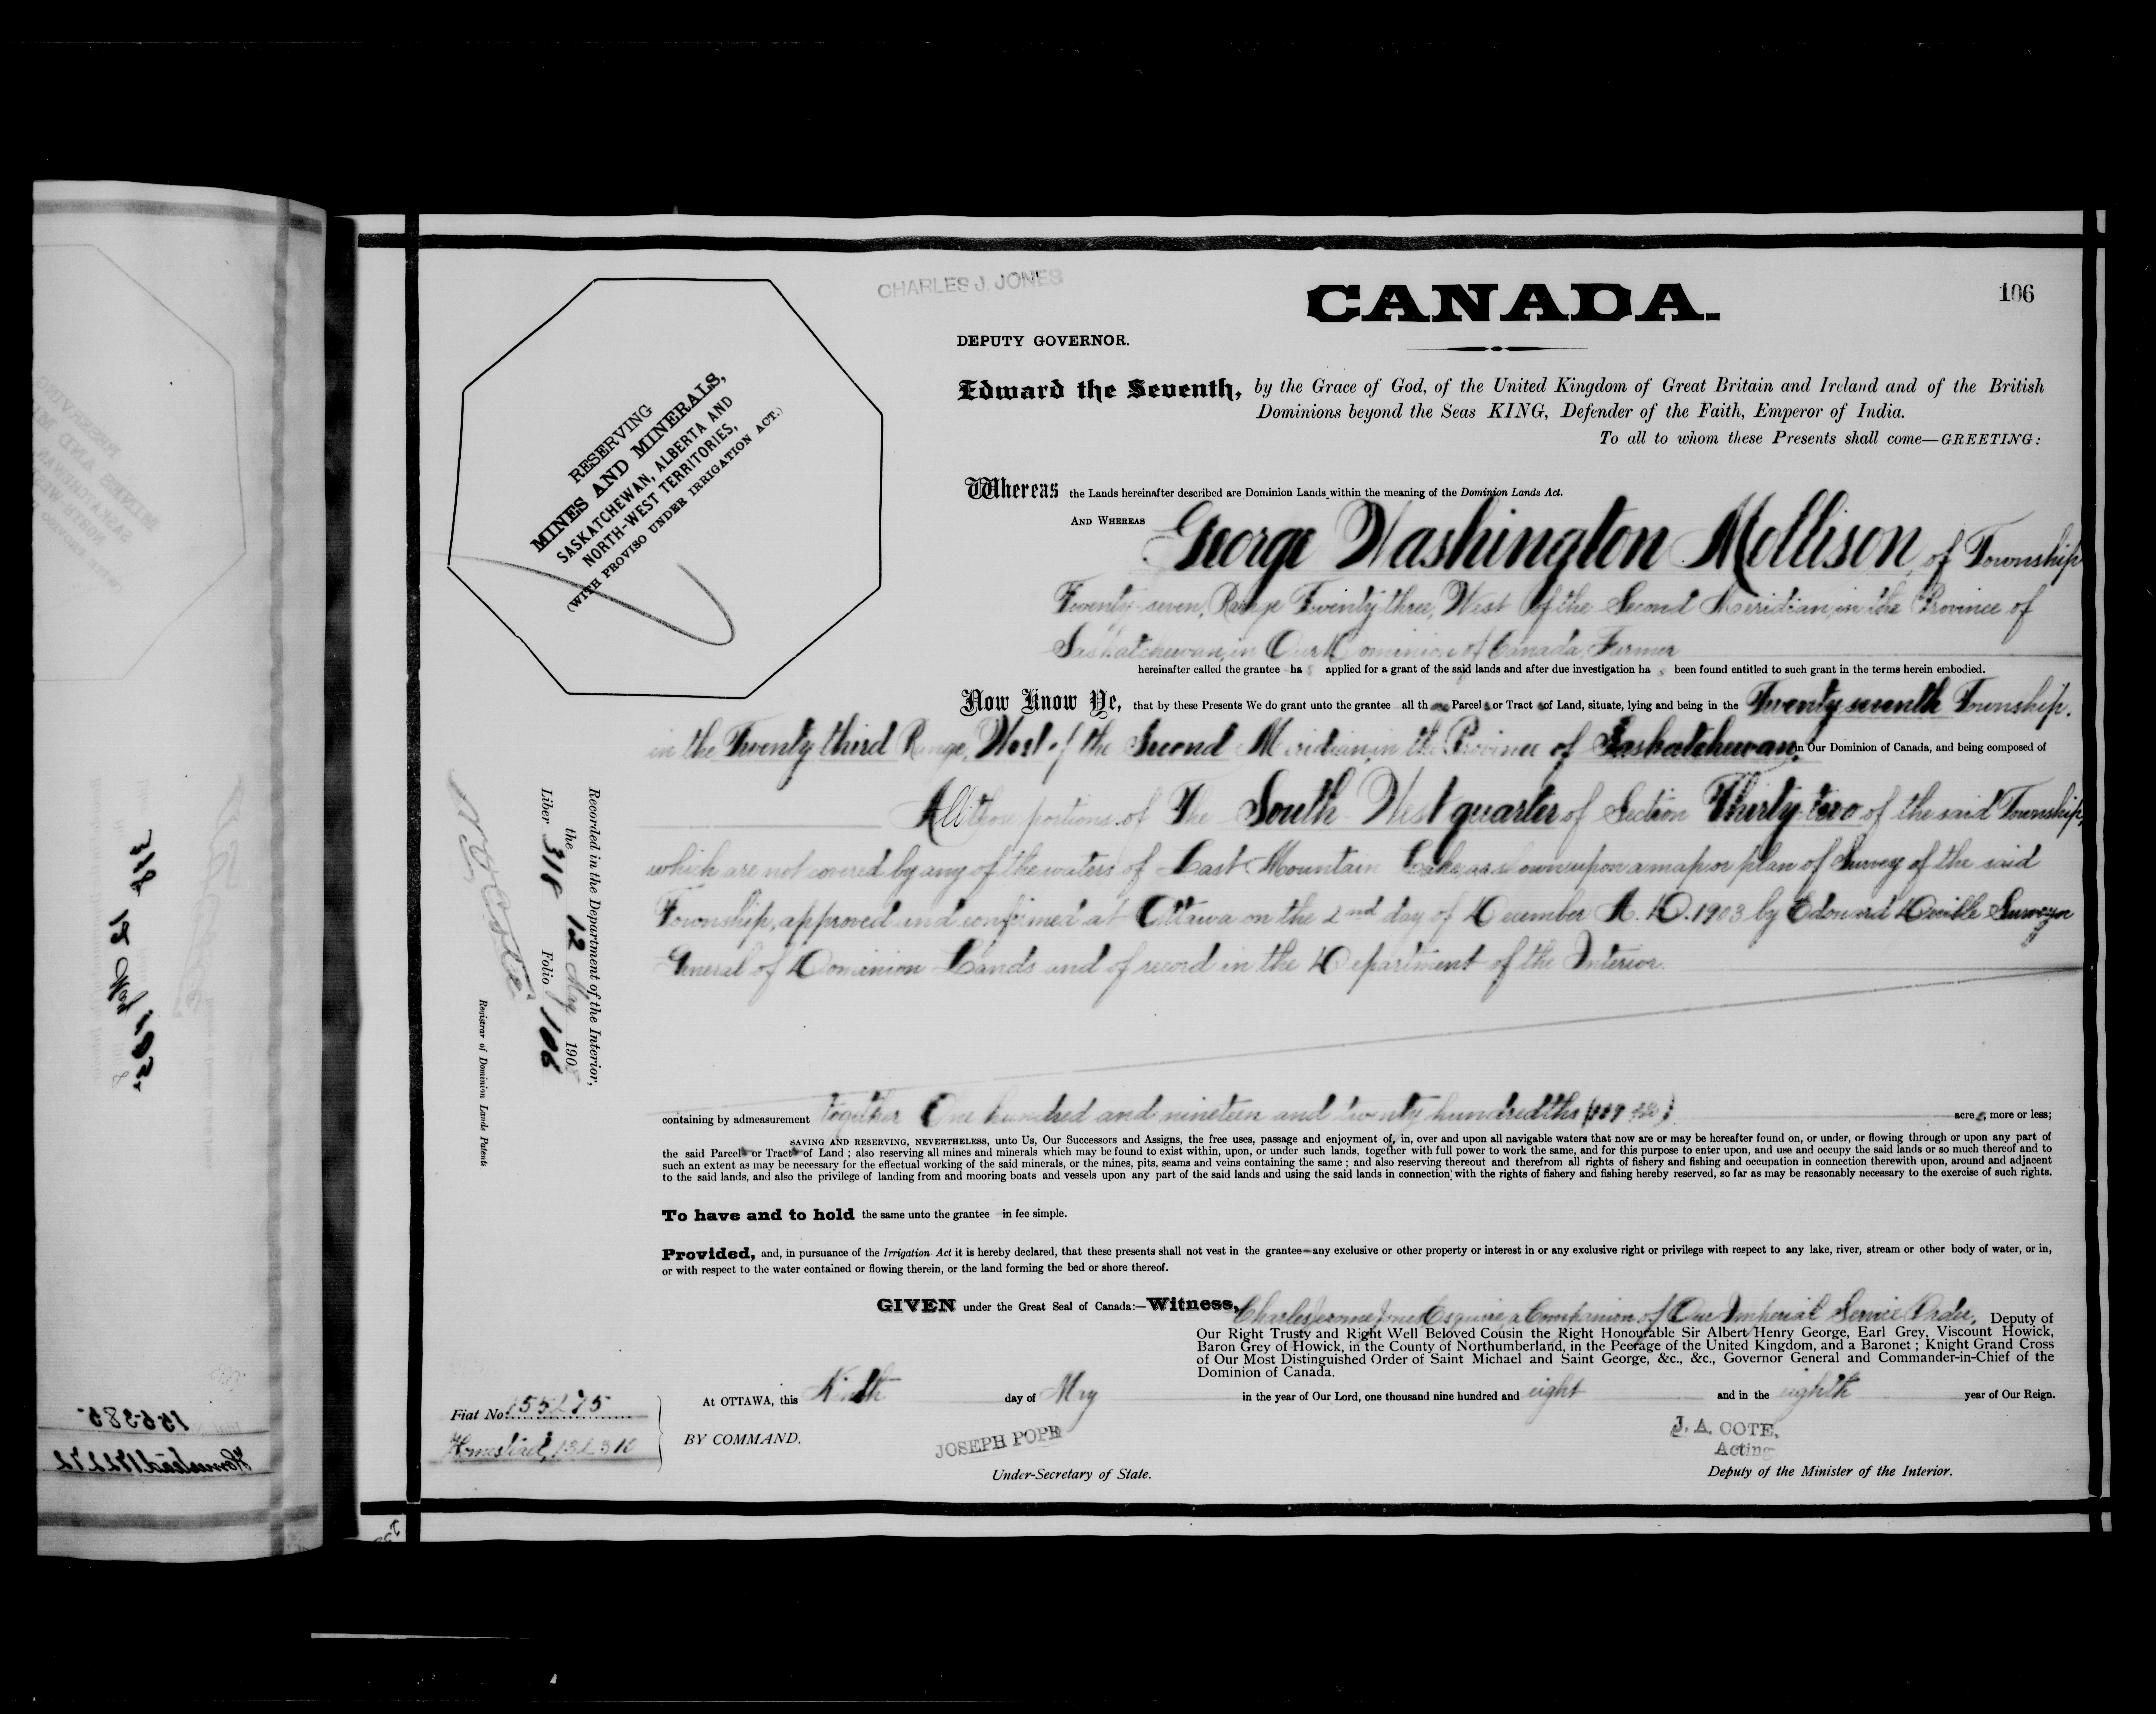 CHARLES J. JONES
CANADA.
106
DEPUTY GOVERNOR.
Edward the Seventh, by the Grace of God, of the United Kingdom of Great Britain and Ireland and of the British
Dominions beyond the Seas KING, Defender of the Faith, Emperor of India.
To all to whom these Presents shall come—GREETING:
RESERVING
MINES AND MINERALS,
SASKATCHEWAN, ALBERTA AND
NORTH-WEST TERRITORIES,
(WITH PROVISO UNDER IRRIGATION ACT.)
Whereas the Lands hereinafter described are Dominion Lands within the meaning of the Dominion Lands Act.
AND WHEREAS George Washington Mollison, of Township
Twenty-seven, Range Twenty three, West of the Second Meridian, in the Province of
Saskatchewan, in Our Dominion of Canada, Farmer
hereinafter called the grantee has applied for a grant of the said lands and after due investigation has been found entitled to such grant in the terms herein embodied.
Now Know Ye, that by these Presents We do grant unto the grantee all th Parcels or Tracts of Land, situate, lying and being in the Twenty seventh Township,
in the Twenty third Range, West of the Second Meridian, in the Province of Saskatchewan, in Our Dominion of Canada, and being composed of
All those portions of The South West quarter of Section Thirty-two of the said Township,
which are not covered by any of the waters of Last Mountain Lake, as shown upon a map or plan of Survey of the said
Township, approved and confirmed at Ottawa on the 2nd day of December A.D. 1903 by Edouard Deville Surveyor
General of Dominion Lands and of record in the Department of the Interior.
containing by admeasurement together One hundred and nineteen and twenty hundredths acres more or less;
SAVING AND RESERVING, NEVERTHELESS, unto Us, Our Successors and Assigns, the free uses, passage and enjoyment of, in, over and upon all navigable waters that now are or may be hereafter found on, or under, or flowing through or upon any part of
the said Parcels or Tracts of Land ; also reserving all mines and minerals which may be found to exist within, upon, or under such lands, together with full power to work the same, and for this purpose to enter upon, and use and occupy the said lands or so much thereof and to
such an extent as may be necessary for the effectual working of the said minerals, or the mines, pits, seams and veins containing the same ; and also reserving thereout and therefrom all rights of fishery and fishing and occupation in connection therewith upon, around and adjacent
to the said lands, and also the privilege of landing from and mooring boats and vessels upon any part of the said lands and using the said lands in connection with the rights of fishery and fishing hereby reserved, so far as may be reasonably necessary to the exercise of such rights.
To have and to hold the same unto the grantee in fee simple.
Provided, and, in pursuance of the Irrigation Act it is hereby declared, that these presents shall not vest in the grantee any exclusive or other property or interest in or any exclusive right or privilege with respect to any lake, river, stream or other body of water, or in,
or with respect to the water contained or flowing therein, or the land forming the bed or shore thereof.
GIVEN under the Great Seal of Canada:—Witness, Charles Jerome Jones Esquire, a Companion of Our Imperial Service Order, Deputy of
Our Right Trusty and Right Well Beloved Cousin the Right Honourable Sir Albert Henry George, Earl Grey, Viscount Howick,
Baron Grey of Howick, in the County of Northumberland, in the Peerage of the United Kingdom, and a Baronet ; Knight Grand Cross
of Our Most Distinguished Order of Saint Michael and Saint George, &c., &c., Governor General and Commander-in-Chief of the
Dominion of Canada.
At OTTAWA, this Ninth day of May in the year of Our Lord, one thousand nine hundred and eight and in the eighth year of Our Reign.
Fiat No. 155275
Homestead, 132310
BY COMMAND,
JOSEPH POPE
Under-Secretary of State.
J. A. COTE,
Acting
Deputy of the Minister of the Interior.
Recorded in the Department of the Interior,
the 12 May 1908
Liber 318 Folio 106
N. O. Coste
Registrar of Dominion Lands Patents